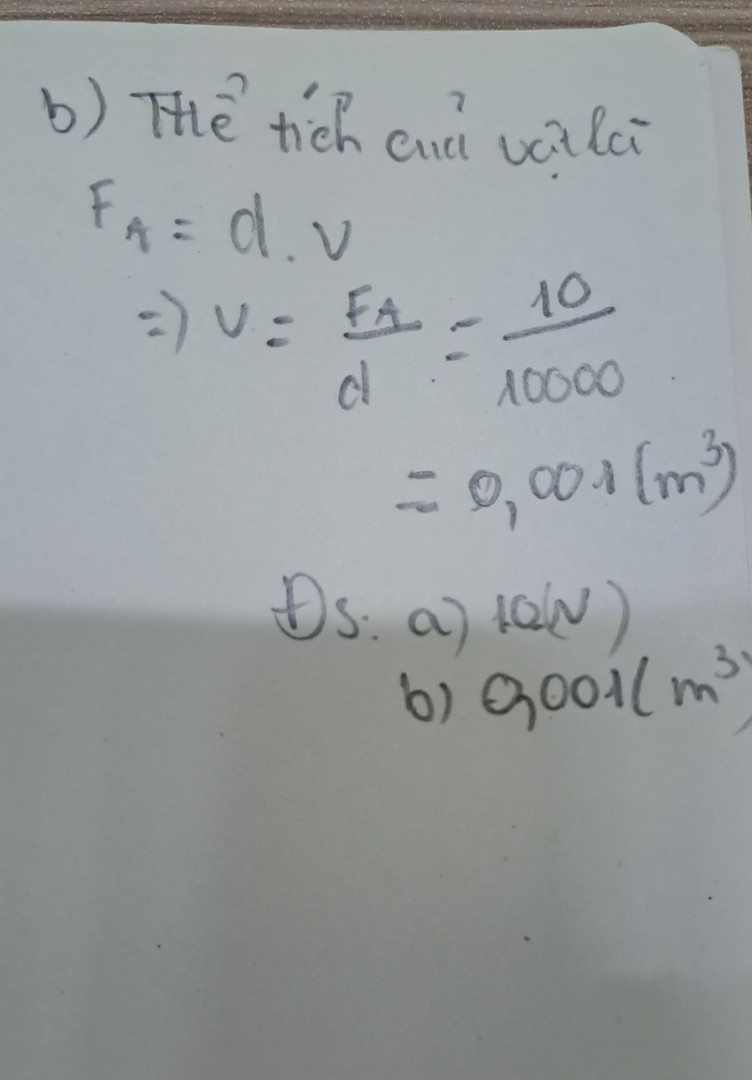 b) Thể tích của vật là
F_A = d . V
=> V = F_A / d = 10 / 10000
= 0,001 (m³)
Đs: a) 10(N)
b) 0,001( m³)